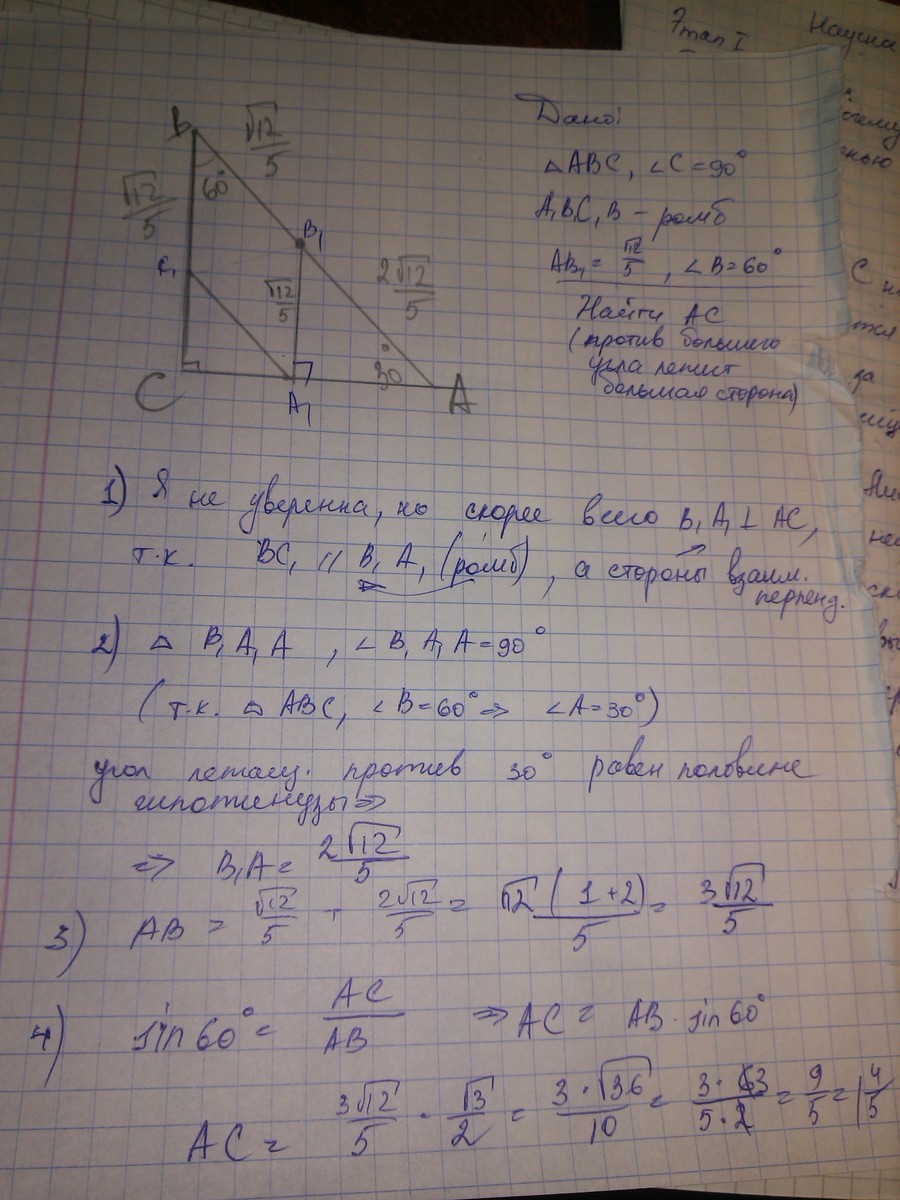 7 тап I Научна
B √12/5
√12/5 60°
Дано:
△ABC, ∠C=90°
A₁B₁C₁B – ромб
AB₁ = √12/5, ∠B=60°
Найти AC
(против большего
угла лежит
большая сторона)
B₁
C₁ √12/5 2√12/5
30°
C A₁ A
1) Я не уверенна, но скорее всего B₁A₁ ⊥ AC,
т.к. BC₁ // B₁A₁ (ромб), а стороны взаим.
перпенд.
2) △ B₁A₁A, ∠B₁A₁A=90°
(т.к. △ABC, ∠B=60° ⇒ ∠A=30°)
угол лежащ. против 30° равен половине
гипотинузы ⇒
⇒ B₁A = 2√12/5
3) AB = √12/5 + 2√12/5 = √12(1+2)/5 = 3√12/5
4) sin60° = AC/AB ⇒ AC = AB · sin60°
AC = 3√12/5 · √3/2 = 3·√36/10 = 3·63/5·2 = 9/5 = 1 4/5